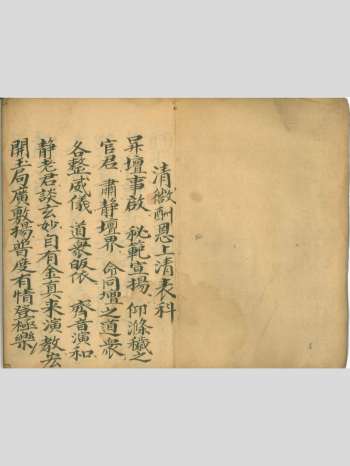 清微酬恩上清表科
昇壇事啟　秘範宣揚　仰滌穢之
官君　肅静壇界　命同壇之道衆
各整威儀　道衆皈依　齊音演和
静老君談玄妙自有金真来演教宏
開玉局廣敷揚普度有情登極樂